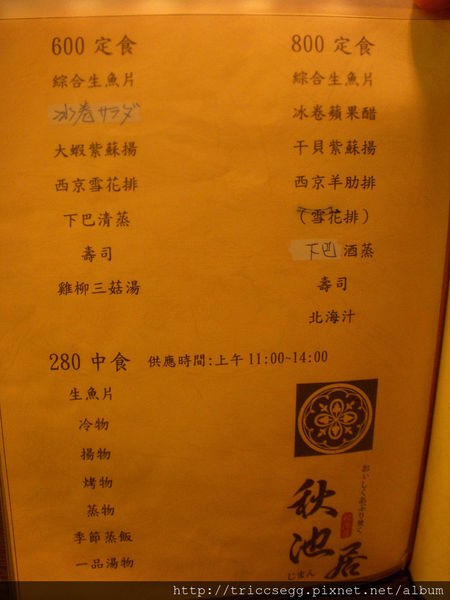 600 定食
綜合生魚片
冰卷サラダ
大蝦紫蘇揚
西京雪花排
下巴清蒸
壽司
雞柳三菇湯
800 定食
綜合生魚片
冰卷蘋果醋
干貝紫蘇揚
西京羊肋排
(雪花排)
下巴酒蒸
壽司
北海汁
280 中食 供應時間:上午 11:00~14:00
生魚片
冷物
揚物
烤物
蒸物
季節蒸飯
一品湯物
秋池居
じまん
http://triccsegg.pixnet.net/album